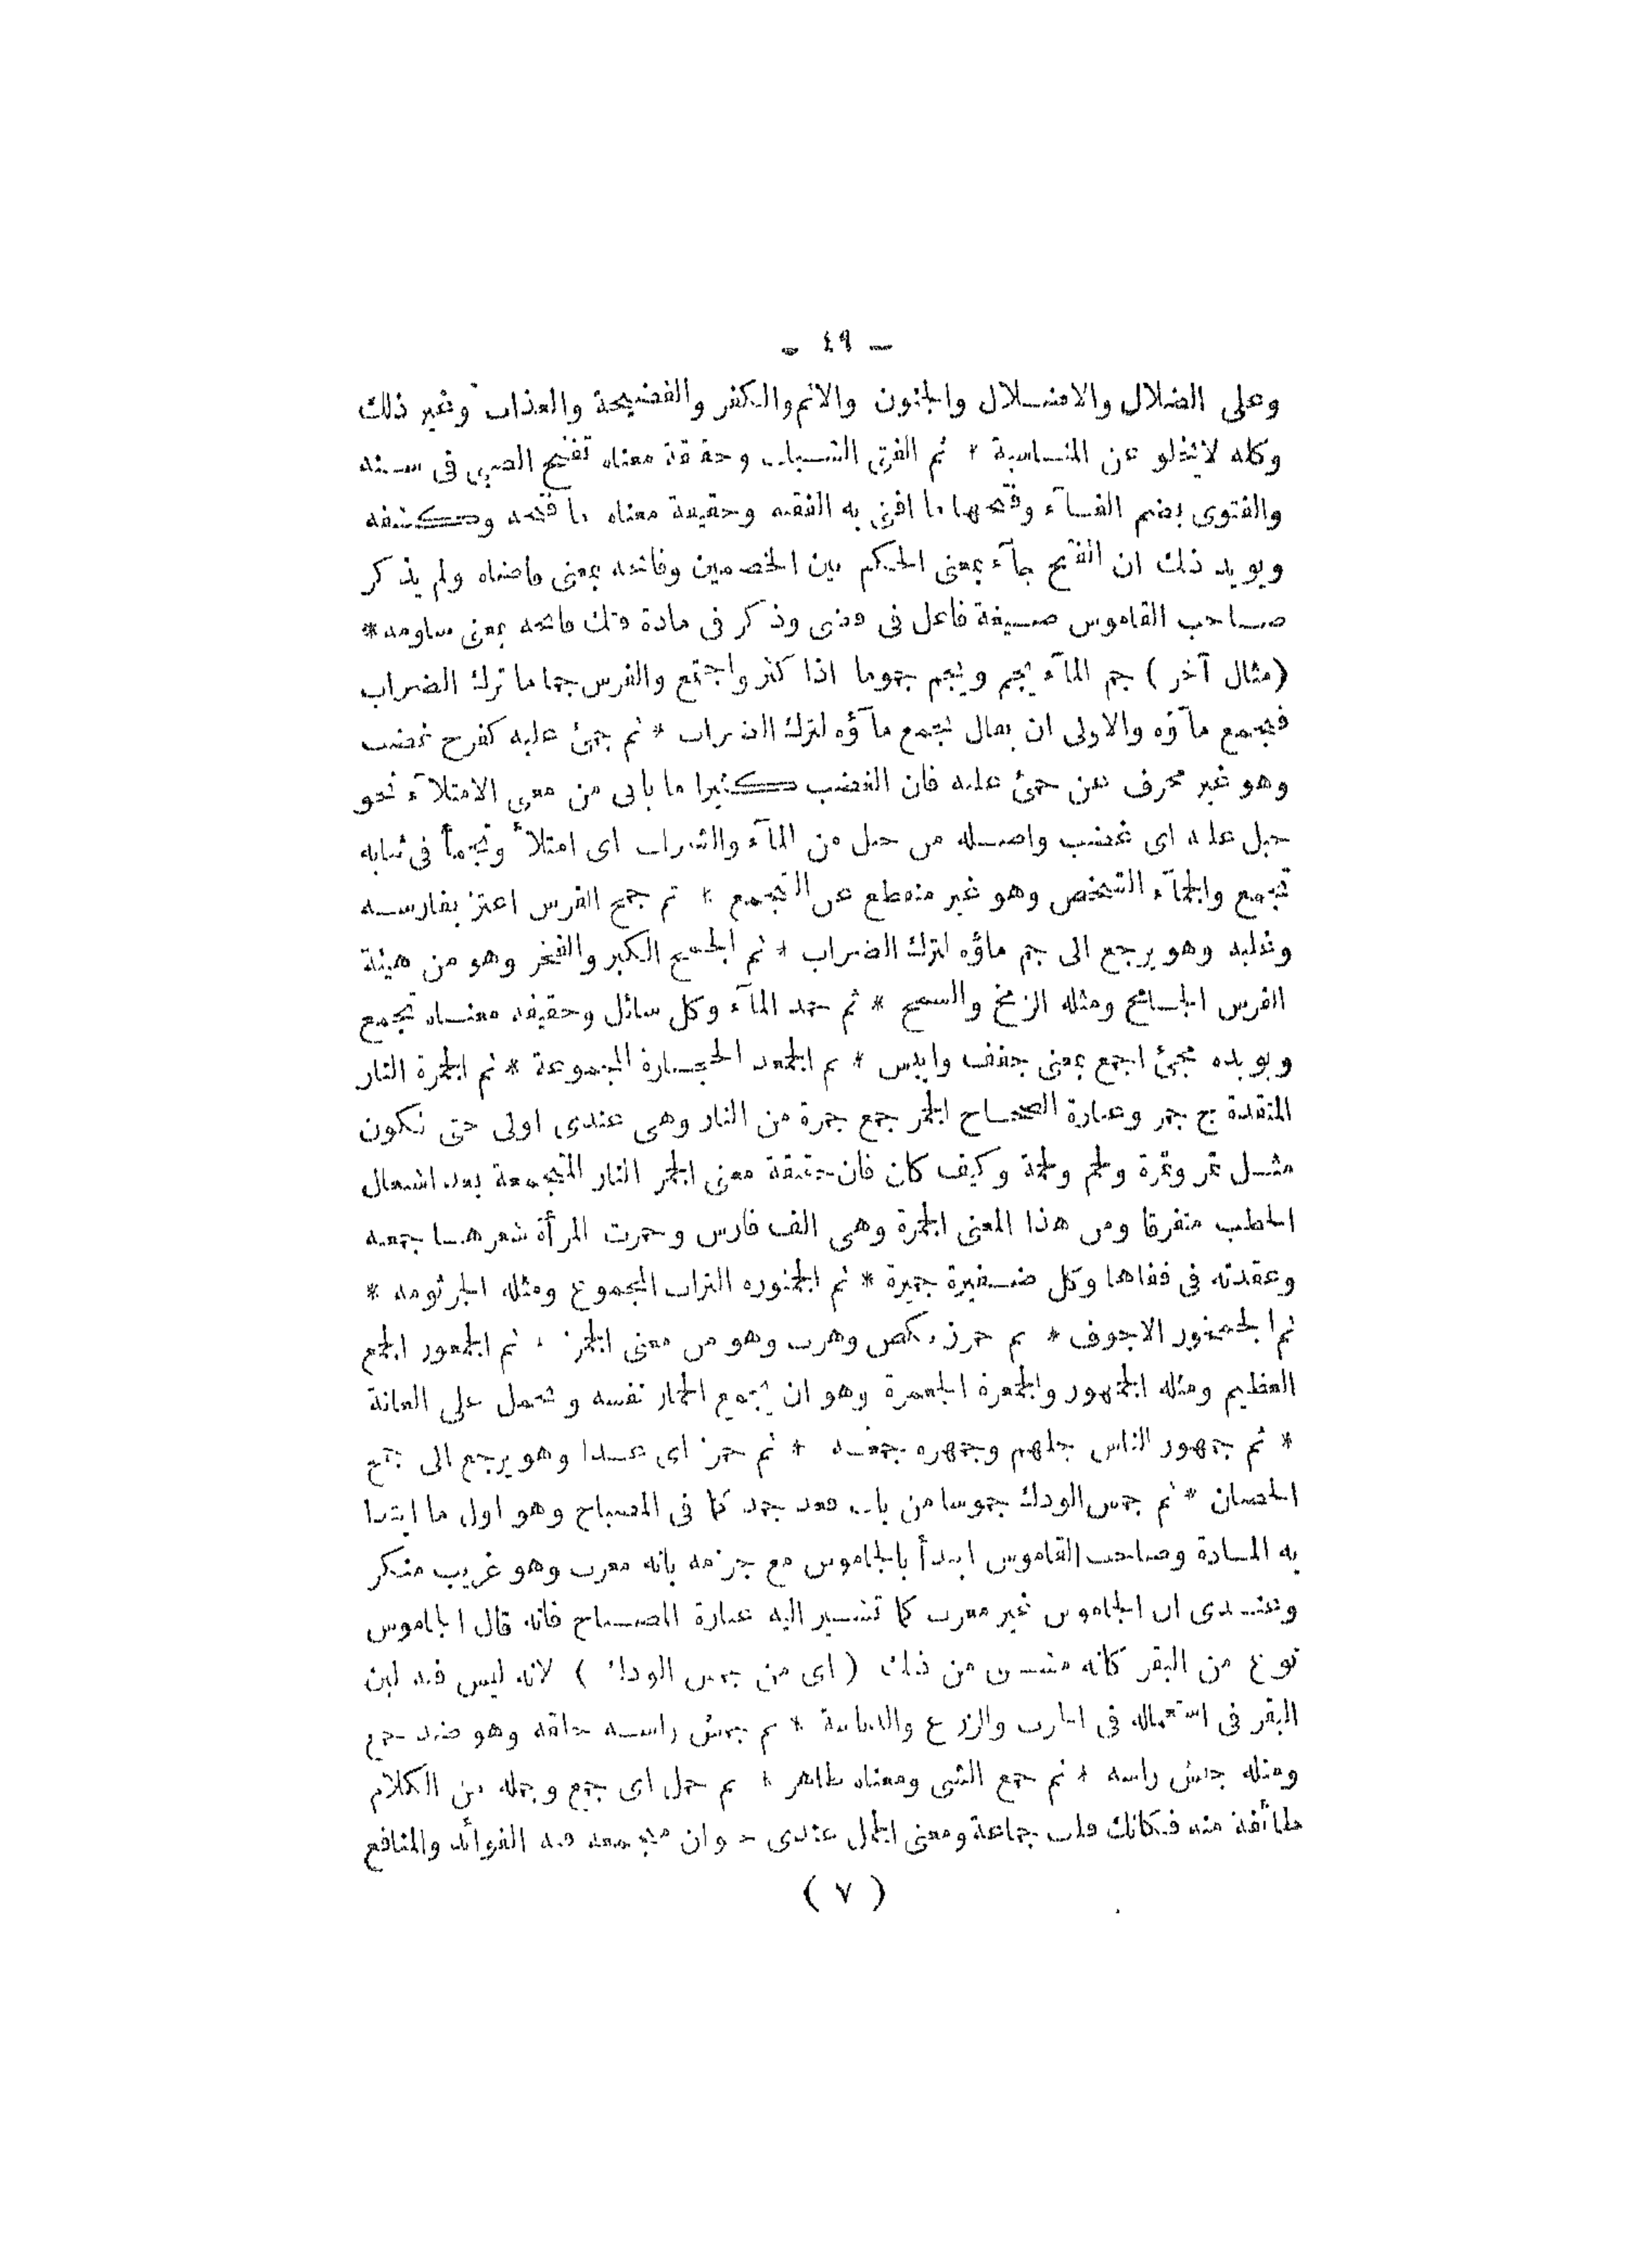 - ٤٩ -
وعلى الضلال والاضلال والجنون والاثم والكفر والفضيحة والعذاب وغير ذلك
وكله لا يخلو عن المناسبة * ثم الفتى الشباب وحقيقة معناه تفتح الصبى فى سنه
والفتوى بضم الفآء وفتحها ما افتى به الفقيه وحقيقة معناه ما فتحه وكشفه
ويويد ذلك ان الفتح جآء بمعنى الحكم بين الخصمين وفاتحه بمعنى قاضاه ولم يذكر
صاحب القاموس صيغة فاعل فى فتى وذكر فى مادة فتك فاتحه بمعنى ساومه *
(مثال آخر) جم المآء يجم ويجم جموما اذا كثر واجتمع والفرس جماما ترك الضراب
فتجمع مآؤه والاولى ان يقال تجمع مآؤه لترك الضراب * ثم جمئ عليه كفرح غضب
وهو غير محرف عن حمئ عليه فان الغضب كثيرا ما ياتى من معنى الامتلآء نحو
حبل عليه اى غضب واصله من حبل من المآء والشراب اى امتلأ وتجمأ فى ثيابه
تجمع والجمآء الشخص وهو غير منقطع عن التجمع * ثم جمح الفرس اعتز بفارسه
وغلبه وهو يرجع الى جم ماؤه لترك الضراب * ثم الجمخ الكبر والفخر وهو من هيئة
الفرس الجامح ومثله الزمخ والشمخ * ثم جمد المآء وكل سائل وحقيقة معناه تجمع
ويويده مجئ اجمع بمعنى جفف وايبس * ثم الجمعد الحجارة المجموعة * ثم الجمرة النار
المتقدة ج جمر وعبارة الصحاح الجمر جمع جمرة من النار وهى عندى اولى حتى تكون
مثل تمر وتمرة ولحم ولحمة وكيف كان فان حقيقة معنى الجمر النار المتجمعة بعد اشتعال
الحطب متفرقا ومن هذا المعنى الجمرة وهى الف فارس وجمرت المرأة شعرها جمعته
وعقدته فى قفاها وكل ضفيرة جميرة * ثم الجمثورة التراب المجموع ومثله الجرثومة *
ثم الجمخور الاجوف * ثم جمرز نكص وهرب وهو من معنى الجمز * ثم الجمعور الجمع
العظيم ومثله الجمهور والجمعرة الجعمرة وهو ان يجمع الحمار نفسه ويحمل على العانة
* ثم جمهور الناس جلهم وجمهره جمعه * ثم جمز اى عدا وهو يرجع الى جمح
الحصان * ثم جمس الودك جموسا من باب قعد جمد كما فى المصباح وهو اول ما ابتدا
به المادة وصاحب القاموس ابتدأ بالجاموس مع جزمه بانه معرب وهو غريب منكر
وعندى ان الجاموس غير معرب كما تشير اليه عبارة المصباح فانه قال الجاموس
نوع من البقر كانه مشتق من ذلك (اى من جمس الودك) لانه ليس فيه لين
البقر فى استعماله فى الحرب والزرع والدياسة * ثم جمش راسه حلقه وهو ضد جمع
ومثله جمش راسه * ثم جمع الشى ومعناه ظاهر * ثم جمل اى جمع وجملة من الكلام
طائفة منه فكانك قلت جماعة ومعنى الجمل عندى حيوان مجتمعة فيه الفوائد والمنافع
(٧)